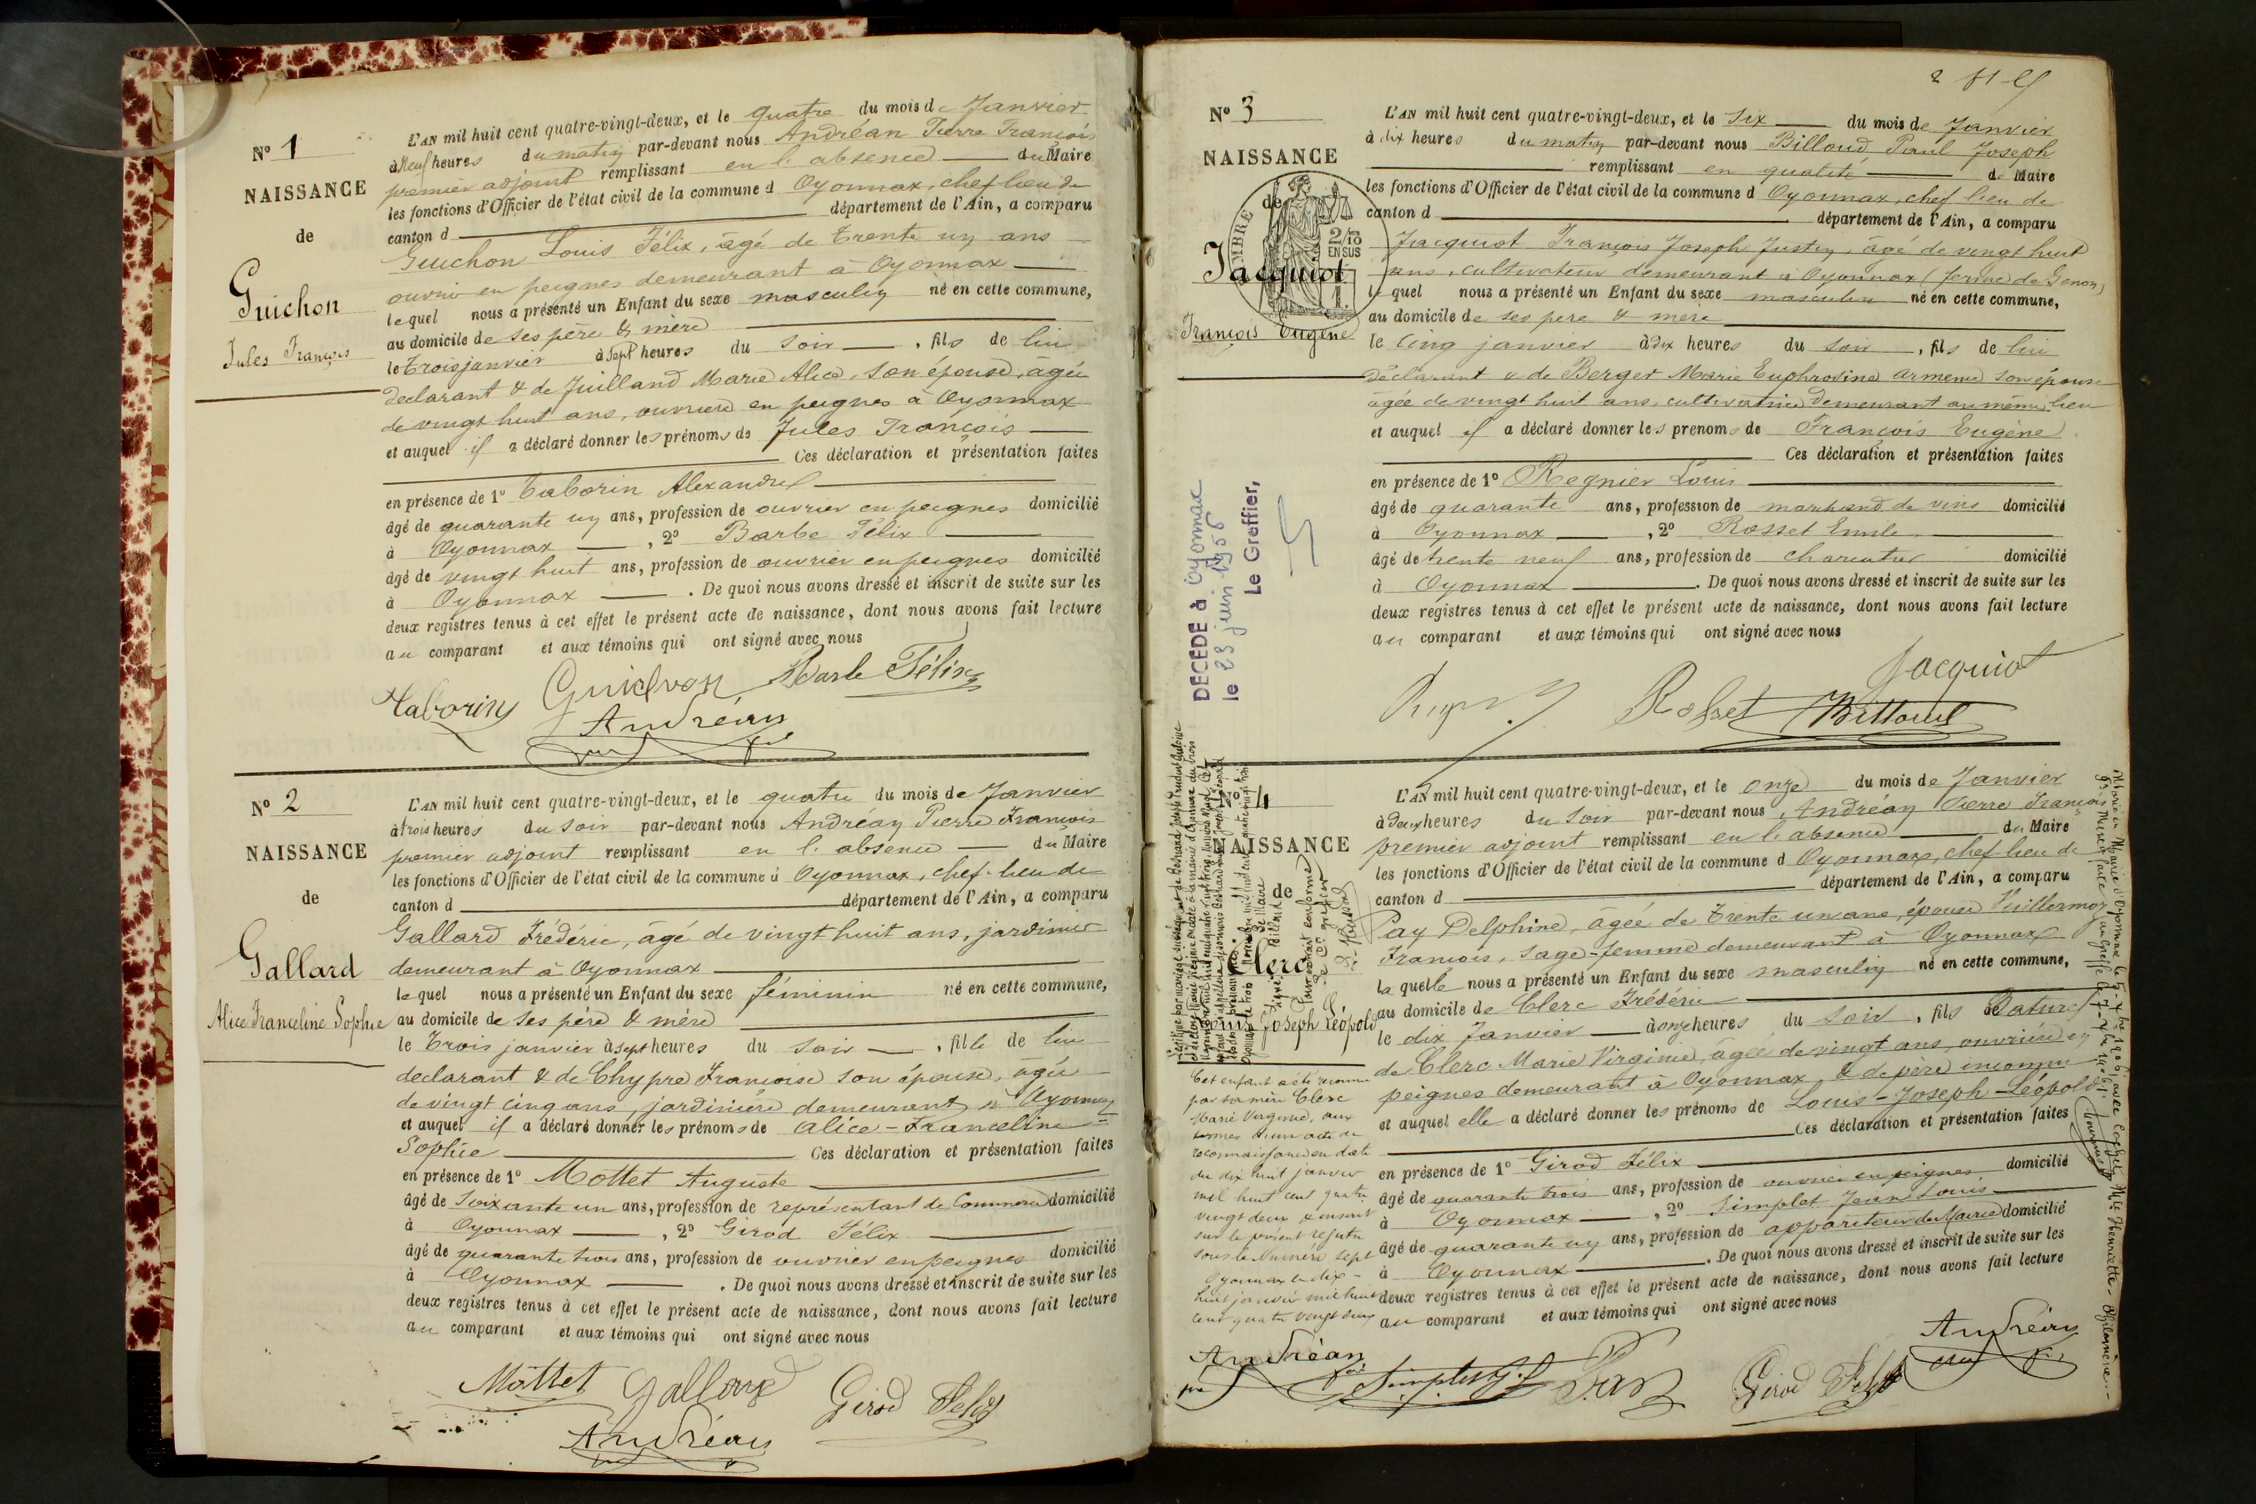 N° 1
NAISSANCE
de
Guichon
Jules François
L'AN mil huit cent quatre-vingt-deux, et le quatre du mois de Janvier
à Neuf heures du matin par-devant nous Andréan Pierre François
premier adjoint remplissant en l'absence du Maire
les fonctions d'Officier de l'état civil de la commune d Oyonnax, chef lieu de
canton d département de l'Ain, a comparu
Guichon Louis Félix, âgé de trente un ans
ouvrier en peignes demeurant à Oyonnax
lequel nous a présenté un Enfant du sexe masculin né en cette commune,
au domicile de ses père & mère
le trois janvier à sept heures du soir, fils de lui
declarant & de Juilland Marie Alice, son épouse, âgée
de vingt huit ans, ouvriere en peignes à Oyonnax
et auquel il a déclaré donner les prénoms de Jules François
Ces déclaration et présentation faites
en présence de 1° Taborin Alexandre
âgé de quarante un ans, profession de ouvrier en peignes domicilié
à Oyonnax, 2° Barbe Félix
âgé de vingt huit ans, profession de ouvrier en peignes domicilié
à Oyonnax. De quoi nous avons dressé et inscrit de suite sur les
deux registres tenus à cet effet le présent acte de naissance, dont nous avons fait lecture
au comparant et aux témoins qui ont signé avec nous
Taborin Guichon Barbe Félix
Andréan
N° 2
NAISSANCE
de
Gallard
Alice Franceline Sophie
L'AN mil huit cent quatre-vingt-deux, et le quatre du mois de Janvier
à trois heures du soir par-devant nous Andréan Pierre François
premier adjoint remplissant en l'absence du Maire
les fonctions d'Officier de l'état civil de la commune d Oyonnax, chef-lieu de
canton d département de l'Ain, a comparu
Gallard Frédéric, âgé de vingt huit ans, jardinier
demeurant à Oyonnax
lequel nous a présenté un Enfant du sexe féminin né en cette commune,
au domicile de ses père & mère
le trois janvier à sept heures du soir, fille de lui
declarant & de Chypre Françoise son épouse, âgée
de vingt cinq ans, jardinière demeurant à Oyonnax
et auquel il a déclaré donner les prénoms de Alice-Franceline-
Sophie Ces déclaration et présentation faites
en présence de 1° Mottet Auguste
âgé de soixante un ans, profession de représentant de Commerce domicilié
à Oyonnax, 2° Girod Félix
âgé de quarante trois ans, profession de ouvrier en peignes domicilié
à Oyonnax. De quoi nous avons dressé et inscrit de suite sur les
deux registres tenus à cet effet le présent acte de naissance, dont nous avons fait lecture
au comparant et aux témoins qui ont signé avec nous
Mottet Gallard Girod Félix
Andréan
2
N° 3
NAISSANCE
de
Jacquiot
François Eugène
TIMBRE
2/10
EN SUS
DECEDE à Oyonnax
le 23 juin 1955
Le Greffier,
L'AN mil huit cent quatre-vingt-deux, et le six du mois de Janvier
à dix heures du matin par-devant nous Billoud Paul Joseph
remplissant en qualité de Maire
les fonctions d'Officier de l'état civil de la commune d Oyonnax, chef lieu de
canton d département de l'Ain, a comparu
Jacquiot François Joseph Justin, âgé de vingt huit
ans, cultivateur demeurant à Oyonnax (ferme de Genon)
lequel nous a présenté un Enfant du sexe masculin né en cette commune,
au domicile de ses père & mère
le cinq janvier à dix heures du soir, fils de lui
déclarant & de Berger Marie Euphrosine Armenie son épouse
âgée de vingt huit ans, cultivatrice demeurant au même lieu
et auquel il a déclaré donner les prenoms de François Eugène
Ces déclaration et présentation faites
en présence de 1° Regnier Louis
âgé de quarante ans, profession de marchand de vins domicilié
à Oyonnax, 2° Rosset Emile
âgé de trente neuf ans, profession de charcutier domicilié
à Oyonnax. De quoi nous avons dressé et inscrit de suite sur les
deux registres tenus à cet effet le présent acte de naissance, dont nous avons fait lecture
au comparant et aux témoins qui ont signé avec nous
Jacquiot
Rosset Billoud
N° 4
NAISSANCE
de
Clerc
Louis Joseph Léopold
Cet enfant a été reconnu
par sa mère Clerc
Marie Virginie, aux
termes d'un acte de
reconnaissance en date
du dix huit janvier
mil huit cent quatre
vingt deux & inscrit
sur le présent registre
sous le numéro sept
Oyonnax le dix-
huit janvier mil huit
cent quatre vingt deux
Andréan
L'AN mil huit cent quatre-vingt-deux, et le onze du mois de Janvier
à deux heures du soir par-devant nous Andréan Pierre François
premier adjoint remplissant en l'absence du Maire
les fonctions d'Officier de l'état civil de la commune d Oyonnax, chef lieu de
canton d département de l'Ain, a comparu
Pay Delphine, âgée de trente un ans, épouse Vuillermoz
François, sage-femme demeurant à Oyonnax
laquelle nous a présenté un Enfant du sexe masculin né en cette commune,
au domicile de Clerc Frédéric
le dix Janvier à onze heures du soir, fils naturel
de Clerc Marie Virginie, âgée de vingt ans, ouvrière en
peignes demeurant à Oyonnax & de père inconnu
et auquel elle a déclaré donner les prénoms de Louis-Joseph-Léopold
Ces déclaration et présentation faites
en présence de 1° Girod Félix
âgé de quarante trois ans, profession de ouvrier en peignes domicilié
à Oyonnax, 2° Simplet Jean Louis
âgé de quarante un ans, profession de appariteur de Mairie domicilié
à Oyonnax. De quoi nous avons dressé et inscrit de suite sur les
deux registres tenus à cet effet le présent acte de naissance, dont nous avons fait lecture
au comparant et aux témoins qui ont signé avec nous
Andréan
Simplet Pay Girod Félix